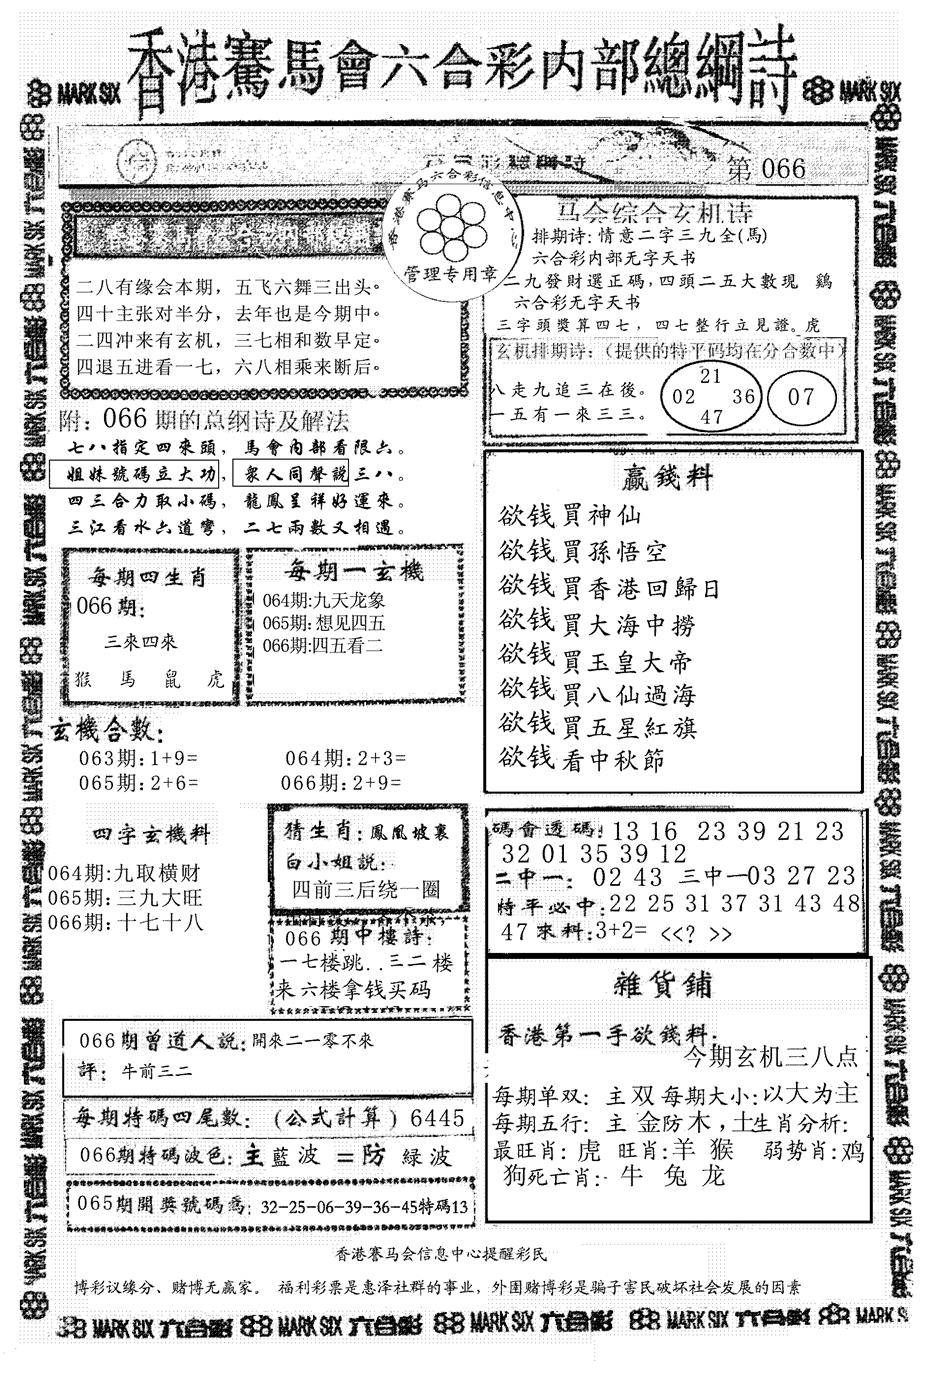 香港賽馬會六合彩内部總綱詩
MARK SIX
MARK SIX
第 066
香港赛马六合彩信息中心
管理专用章
二八有缘会本期，五飞六舞三出头。
四十主张对半分，去年也是今期中。
二四冲来有玄机，三七相和数早定。
四退五进看一七，六八相乘来断后。
马会综合玄机诗
排期诗: 情意二字三九全(馬)
六合彩内部无字天书
二九發財選正碼, 四頭二五大數現 鷄
六合彩无字天书
三字頭獎算四七，四七整行立見證。虎
玄机排期诗:（提供的特平码均在分合数中）
八走九追三在後。
一五有一來三三。
21
02 36
47
07
附: 066 期的总纲诗及解法
七八指定四來頭，馬會内部看限六。
姐妹號碼立大功，衆人同聲説三八。
四三合力取小碼，龍鳳呈祥好運來。
三江看水六道彎，二七兩數又相遇。
每期四生肖
066期:
三來四來
猴 馬 鼠 虎
每期一玄機
064期:九天龙象
065期:想见四五
066期:四五看二
赢錢料
欲钱買神仙
欲钱買孫悟空
欲钱買香港回歸日
欲钱買大海中撈
欲钱買玉皇大帝
欲钱買八仙過海
欲钱買五星紅旗
欲钱看中秋節
玄機合數:
063期: 1+9= 064期: 2+3=
065期: 2+6= 066期: 2+9=
四字玄機料
064期:九取横财
065期:三九大旺
066期:十七十八
猜生肖: 鳳凰坡裏
白小姐説:
四前三后绕一圈
066期中樓詩:
一七楼跳..三二楼
来六楼拿钱买码
碼會透碼: 13 16 23 39 21 23
32 01 35 39 12
二中一: 02 43 三中一03 27 23
特平必中:22 25 31 37 31 43 48
47 來料:3+2= <<? >>
雜貨鋪
香港第一手欲錢料:
今期玄机三八点
每期单双: 主 双 每期大小: 以大为主
每期五行: 主 金防木，土生肖分析:
最旺肖: 虎 旺肖: 羊 猴 弱势肖: 鸡
狗死亡肖: 牛 兔 龙
066期曾道人説: 開來二一零不來
評: 牛前三二
每期特碼四尾數: (公式計算) 6445
066期特碼波色: 主藍波 =防 綠波
065期開獎號碼爲: 32-25-06-39-36-45特碼13
香港赛马会信息中心提醒彩民
博彩议缘分、赌博无赢家。 福利彩票是惠泽社群的事业，外围赌博彩是骗子害民破坏社会发展的因素
MARK SIX 六合彩 MARK SIX 六合彩 MARK SIX 六合彩 MARK SIX 六合彩 MARK S